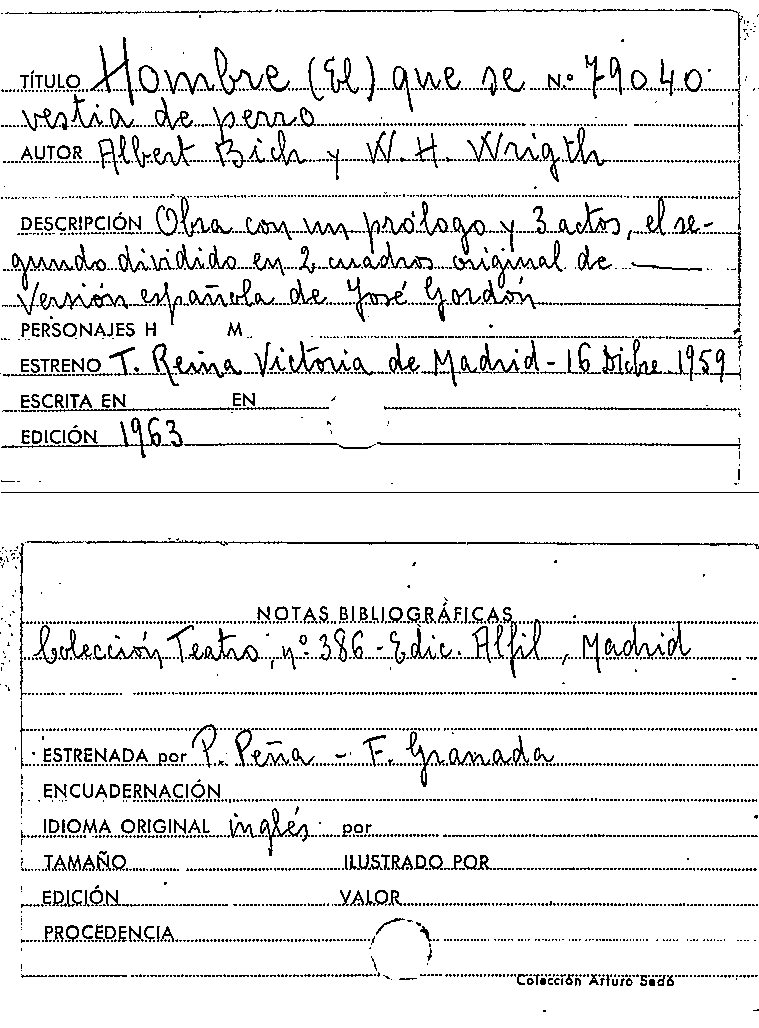 TÍTULO Hombre (El) que se N.º 79040
vestia de perro
AUTOR Albert Bich y W. H. Wrigth
DESCRIPCIÓN Obra con un prólogo y 3 actos, el se-
gundo dividido en 2 cuadros original de ——
Versión española de José Gordón
PERSONAJES H M
ESTRENO T. Reina Victoria de Madrid - 16 Dicbre 1959
ESCRITA EN EN
EDICIÓN 1963
NOTAS BIBLIOGRÁFICAS
Colección Teatro, nº 386 - Edic. Alfil, Madrid
ESTRENADA por P. Peña - F. Granada
ENCUADERNACIÓN
IDIOMA ORIGINAL inglés por
TAMAÑO ILUSTRADO POR
EDICIÓN VALOR
PROCEDENCIA
Colección Arturo Sedó